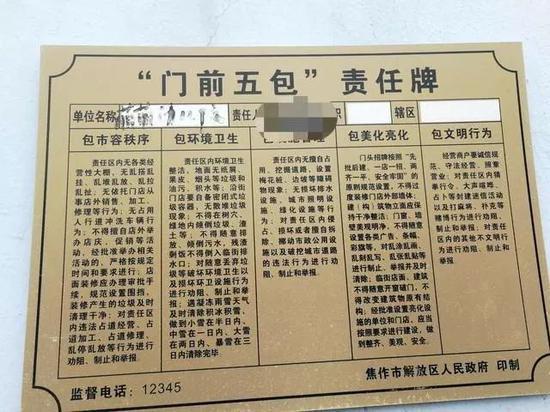 “门前五包”责任牌
单位名称 责任人 职 辖区
包市容秩序
责任区内无各类经
营性大棚，无乱搭乱
挂、乱堆乱放、乱拉
乱扯，无依托门店从
事店外销售、加工、
修理等行为；无占用
人行道冲洗车辆行
为；不得擅自店外举
办店庆、促销等活
动，经批准举办相关
活动的，严格按规定
时间和要求进行；店
面装修应办理审批手
续，规范设置围挡，
装修产生的垃圾及时
清理干净；对责任区
内违法占道经营、占
道加工、占道修理、
乱停乱放等行为进行
劝阻、制止和举报。
包环境卫生
责任区内环境卫生
整洁，地面无纸屑、
果皮、烟头等垃圾和
油污、积水等；沿街
门店要自备密闭式垃
圾容器，无散堆垃圾
现象；不得在树穴、
绿地内倾倒垃圾、渣
土等，不得随意排
放、倾倒污水，残渣
剩饭不得倒入临街排
水口；对随意丢弃垃
圾等破坏环境卫生以
及损坏环卫设施行为
进行劝阻、制止和举
报；遇凝冻雨雪天气
及时清除积冰积雪，
做到小雪在半日内、
中雪在一日内、大雪
在两日内、暴雪在三
日内清除完毕。
责任区内无擅自占
用、挖掘道路，设置
梅花桩、边坡等障碍
物现象；无损坏排水
设施、城市照明设
施、绿化设施等行
为；对责任区内侵
占、损坏或者擅自拆
除、挪动市政公用设
施以及破坏城市道路
的违法行为进行劝
阻、制止和举报。
包美化亮化
门头招牌按照“先
批后建、一店一招、两
齐一平、安全牢固”的
原则规范设置，不得过
度装修门店外部墙体；
建（构）筑物立面应保
持干净整洁；门窗、墙
壁美观明净，不得随意
设置各类广告、条幅、
彩旗等，对乱涂乱画、
乱刻乱写、乱张乱贴等
进行制止、举报并及时
清除；临街店面、建筑
不得随意开窗破门，不
得改变建筑物原有结
构；经批准设置亮化设
施的单位和门店，应当
按照要求进行建设，做
到整齐、美观、安全。
包文明行为
经营商户要诚信规
范、守法经营、照章
营业；对责任区内借
行幸令、大声喧哗、
占卜等封建迷信活动
以及打麻将、扑克等
赌博行为进行劝阻、
制止和举报；对责任
区内的其他不文明行
为进行劝阻、制止和
举报。
监督电话：12345
焦作市解放区人民政府 印制